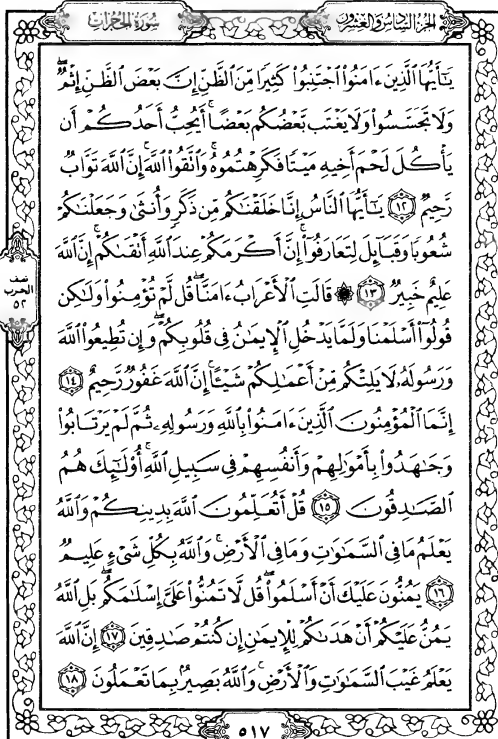 الجزء السادس والعشرون
سورة الحجرات
يَٰٓأَيُّهَا ٱلَّذِينَ ءَامَنُوا۟ ٱجْتَنِبُوا۟ كَثِيرًا مِّنَ ٱلظَّنِّ إِنَّ بَعْضَ ٱلظَّنِّ إِثْمٌۖ
وَلَا تَجَسَّسُوا۟ وَلَا يَغْتَب بَّعْضُكُم بَعْضًاۚ أَيُحِبُّ أَحَدُكُمْ أَن
يَأْكُلَ لَحْمَ أَخِيهِ مَيْتًا فَكَرِهْتُمُوهُۚ وَٱتَّقُوا۟ ٱللَّهَۚ إِنَّ ٱللَّهَ تَوَّابٌ
رَّحِيمٌ ١٢ يَٰٓأَيُّهَا ٱلنَّاسُ إِنَّا خَلَقْنَٰكُم مِّن ذَكَرٍ وَأُنثَىٰ وَجَعَلْنَٰكُمْ
شُعُوبًا وَقَبَآئِلَ لِتَعَارَفُوٓا۟ۚ إِنَّ أَكْرَمَكُمْ عِندَ ٱللَّهِ أَتْقَىٰكُمْۚ إِنَّ ٱللَّهَ
عَلِيمٌ خَبِيرٌ ١٣ ۞ قَالَتِ ٱلْأَعْرَابُ ءَامَنَّاۖ قُل لَّمْ تُؤْمِنُوا۟ وَلَٰكِن
قُولُوٓا۟ أَسْلَمْنَا وَلَمَّا يَدْخُلِ ٱلْإِيمَٰنُ فِى قُلُوبِكُمْۖ وَإِن تُطِيعُوا۟ ٱللَّهَ
وَرَسُولَهُۥ لَا يَلِتْكُم مِّنْ أَعْمَٰلِكُمْ شَيْـًٔاۚ إِنَّ ٱللَّهَ غَفُورٌ رَّحِيمٌ ١٤
إِنَّمَا ٱلْمُؤْمِنُونَ ٱلَّذِينَ ءَامَنُوا۟ بِٱللَّهِ وَرَسُولِهِۦ ثُمَّ لَمْ يَرْتَابُوا۟
وَجَٰهَدُوا۟ بِأَمْوَٰلِهِمْ وَأَنفُسِهِمْ فِى سَبِيلِ ٱللَّهِۚ أُو۟لَٰٓئِكَ هُمُ
ٱلصَّٰدِقُونَ ١٥ قُلْ أَتُعَلِّمُونَ ٱللَّهَ بِدِينِكُمْ وَٱللَّهُ
يَعْلَمُ مَا فِى ٱلسَّمَٰوَٰتِ وَمَا فِى ٱلْأَرْضِۚ وَٱللَّهُ بِكُلِّ شَىْءٍ عَلِيمٌ
١٦ يَمُنُّونَ عَلَيْكَ أَنْ أَسْلَمُوا۟ۖ قُل لَّا تَمُنُّوا۟ عَلَىَّ إِسْلَٰمَكُمۖ بَلِ ٱللَّهُ
يَمُنُّ عَلَيْكُمْ أَنْ هَدَىٰكُمْ لِلْإِيمَٰنِ إِن كُنتُمْ صَٰدِقِينَ ١٧ إِنَّ ٱللَّهَ
يَعْلَمُ غَيْبَ ٱلسَّمَٰوَٰتِ وَٱلْأَرْضِۚ وَٱللَّهُ بَصِيرٌۢ بِمَا تَعْمَلُونَ ١٨
نصف
الحزب
٥٢
٥١٧